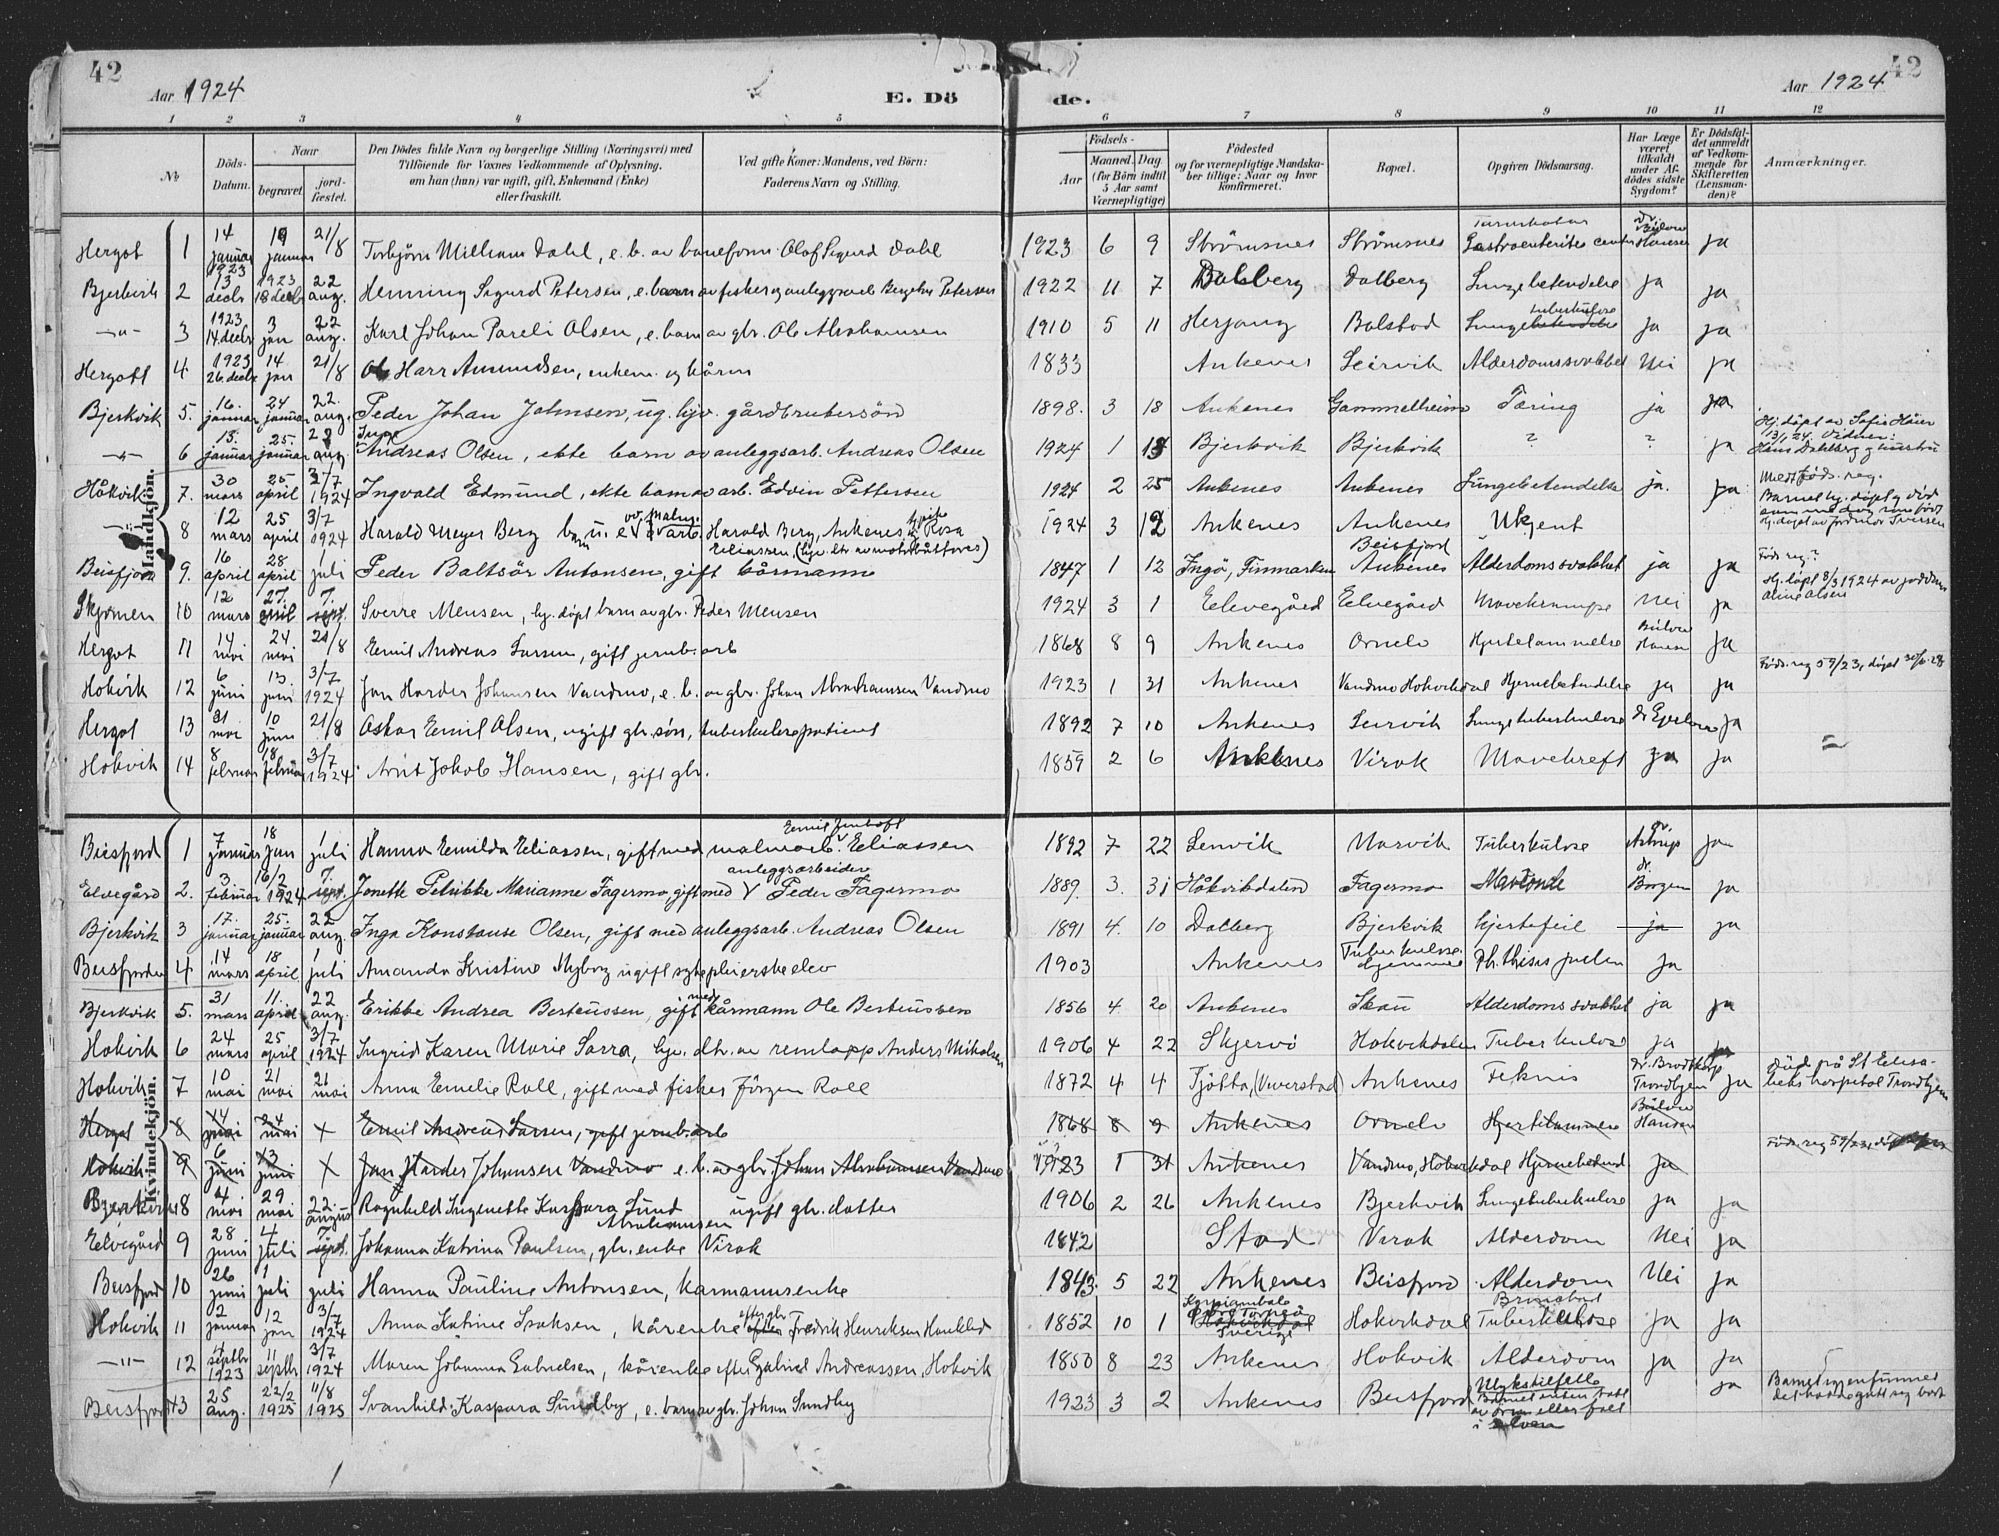 42
Aar 1924
E. Döde.
Aar 1924
42
1 2 3 4 5 6 7 8 9 10 11 12
№
Döds-Datum.
Naar
begravet.
jordfæstet.
Den Dödes fulde Navn og borgerlige Stilling (Næringsvei) med
Tilföiende for Voxnes Vedkommende af Oplysning,
om han (hun) var ugift, gift, Enkemand (Enke)
eller fraskilt.
Ved gifte Koner: Mandens, ved Börn:
Faderens Navn og Stilling.
Födsels-
Aar
Maaned. Dag
(for Börn indtil
5 Aar samt
Værnepligtige)
Födested
og for værnepligtige Mandskaber tillige: Naar og hvor
konfirmeret.
Bopæl.
Opgiven Dödsaarsag.
Har Læge
været
tilkaldt
under Afdödes sidste
Sygdom?
Er Dödsfaldet anmeldt
af Vedkommende for
Skifteretten
(Lensmanden)?
Anmærkninger.
Mandkjön.
Hergot 1 14 januar 19 januar 21/8 Torbjörn William Dahl, e. b. av baneform. Olaf Sigurd Dahl 1923 6 9 Strömsnes Strömsnes Gastroenterites Dr Bülow Hansen ja
Bjerkvik 2 1923 13 decbr 1923 18 decbr 22 aug. Henning Sigurd Petersen, e. barn av fisker og anleggsarb. Petersen 1922 11 7 Dalberg Dalberg Lungebetendelse ja ja
-"- 3 1923 14 decbr 3 jan 22 aug. Karl Johan Pareli Olsen, e. barn av gbr. Ole Abrahamsen 1910 5 11 Herjang Balstad Lungetuberkulose ja ja
Hergott 4 1923 26 decbr 14 jan 21/8 Ole Harr Amundsen, enkem. og kårm 1833 Ankenes Leirvik Alderdomssvakhet Nei ja
Bjerkvik 5. 16. januar 24 januar 22. aug. Peder Johan Johnsen, ug. hjv. gårdbrukersön 1898. 3 18 Ankenes Gammelheim Tæring ja ja
-"- 6 13. januar 25. januar 22 aug Inge Andreas Olsen, ekte barn av anleggsarb. Andreas Olsen 1924 1 13 Bjerkvik Bjerkvik ? ? ja Hj. döpt av Sofie
13/1 24. Vidner:
Hans Dahlberg og hustru
Håkvik 7. 30 mars 25 april 3/7 1924 Ingvald Edmund, ekte barn av arb. Edvin Pettersen 1924 2 25 Ankenes Ankenes Lungebetendelse ja. ja
-"- 8 12 mars 25 april 3/7 1924 Harald Meyer Berg barn u. e. av malm-arb. Harald Berg, Ankenes og Rosa
Eliassen, (hjv. dtr. av 1924 3 12 Ankenes Ankenes Ukjent
Beisfjord 9. 16 april 28 april juli Peder Baltsär Antonsen, gift kårmann 1847 1 12 Ingö, Finmarken Beisfjord Ankenes Alderdomssvakhet ja ja
Skjomen 10 12 mars 27. april 7. sept. Sverre Mensen, hj. döpt barn av gbr. Peder Mensen 1924 3 1 Elvegård Elvegård Mavekrampe Nei ja Föds. reg.?
Hj. döpt 8/3 1924 av
Hergot 11 14 mai 24 mai 21/8 Emil Andreas Larsen, gift jernb. arb 1868 8 9 Ankenes Ornelv Hjertelammelse Bülow Hansen ja
Hokvik 12 6 juni 13. juni 3/7 1924 Jan Harder Johansen Vandmo, e. b. av gbr. Johan Abrahamsen Vandmo 1923 1 31 Ankenes Vandmo Hokvikdal Hjernebetendelse ja ja
Hergot 13 31 mai 10 juni 21/8 Oskar Emil Olsen, ugift gbr. sön, tuberkulosepatient 1892 7 10 Ankenes Leirvik Lungetuberkulose ja
Hokvik 14 8 februar 18 februar 3/7 1924 Arnt Jakob Hansen, gift gbr. 1859 2 6 Ankenes Virak Mavekreft ja ja
Kvindekjön.
Beisfjord 1 7 januar 18 jan 1 juli Hanna Emilda Eliassen, gift med malmarb. Eliassen 1892 7 22 Lenvik Narvik Tuberkulose dr Astrup ja
Elvegård 2. 3 februar 16/2 1924 7. sept. Jonette Petrikke Marianne Fagermo, gift med anleggsarbeider Peder Fagermo 1889. 3. 31 Håkvikdalen Fagermo dr. Borgen ja
Bjerkvik 3 17. januar 25. januar 22 aug. Inga Konstanse Olsen, gift med anleggsarb. Andreas Olsen 1891 4. 10 Dalberg Bjerkvik Hjertefeil ja ja
Beisfjorden 4 14 mars 18 april 1 juli Amanda Kristine Myborg ugift sykepleierskeelev 1903 Ankenes Tuberkulosehjemmet Phthisis pulm ja
Bjerkvik 5. 31 mars 11. april 22 aug. Erikke Andrea Berteussen, gift med kårmann Ole Berteussen 1856 4. 20 Ankenes Skau Alderdomssvakhet ja ja
Hokvik 6 24 mars 25 april 3/7 1924 Ingrid Karen Marie Sarra, hjv. dtr. av remlapp Anders Mikalsen 1906 4 22 Skjervö Hokvikdalen Tuberkulose ja ja
Hokvik 7 10 mai 21 mai 21 mai Anna Emelie Roll, gift med fisker Jörgen Roll 1872 4 4 Tjötta, (Viverstad) Ankenes Trondhjem ja död på St Elisabeths hospital Trondhjem
Hergot 8 14 mai 24 mai × Emil Andreas Larsen, gift jernb. arb 1868 8 9 Ankenes Ornelv Hjertelammelse Bülow Hansen
Hokvik 9 6 juni 13 juni × Jan Harder Johansen Vandmo e. b. av gbr. Johan Abrahamsen Vandmo 1923 1 31 Ankenes Vandmo, Hokvikdal Hjernebetend ja
Bjerkvik 8 4 mai 29 mai 22. august Ragnhild Ingenette Kaspara Lund ugift gbr. datter 1906 2 26 Ankenes Bjerkvik Lungetuberkulose ja ja
Elvegård 9 28 juni 4 juli 7. sept. Johanna Katrina Paulsen, Abrahamsen gbr. enke Virak 1842 Stod Virak Alderdom Nei ja
Beisfjord 10 26 juni 1 juli juli Hanna Pauline Antonsen, karmannsenke 1843. 5 22 Ankenes Beisfjord Alderdom Nei ja
Hokvik 11 2 januar 12 jan 3/7 1924 Anna Katrine Isaksen, kårenke efter gbr. Fredrik Henriksen Hauklid 1852 10 1 Sverige Hokvikdal Tuberkulose ja ja
-"- 12 4 septbr 1923 11 septbr 3/7 1924 Maren Johanna Gabrielsen, kårenke efter Gabriel Andreassen, Hokvik 1850 8 23 Ankenes Hokvik Alderdom ja ja
Beisfjord 13 25 aug. 22/2 1925 11/8 1925 Svanhild Kaspara Sundby, e. barn av gbr. Johan Sundby 1923 3 2 Ankenes Beisfjord Ulykstilfelle
i elven ja